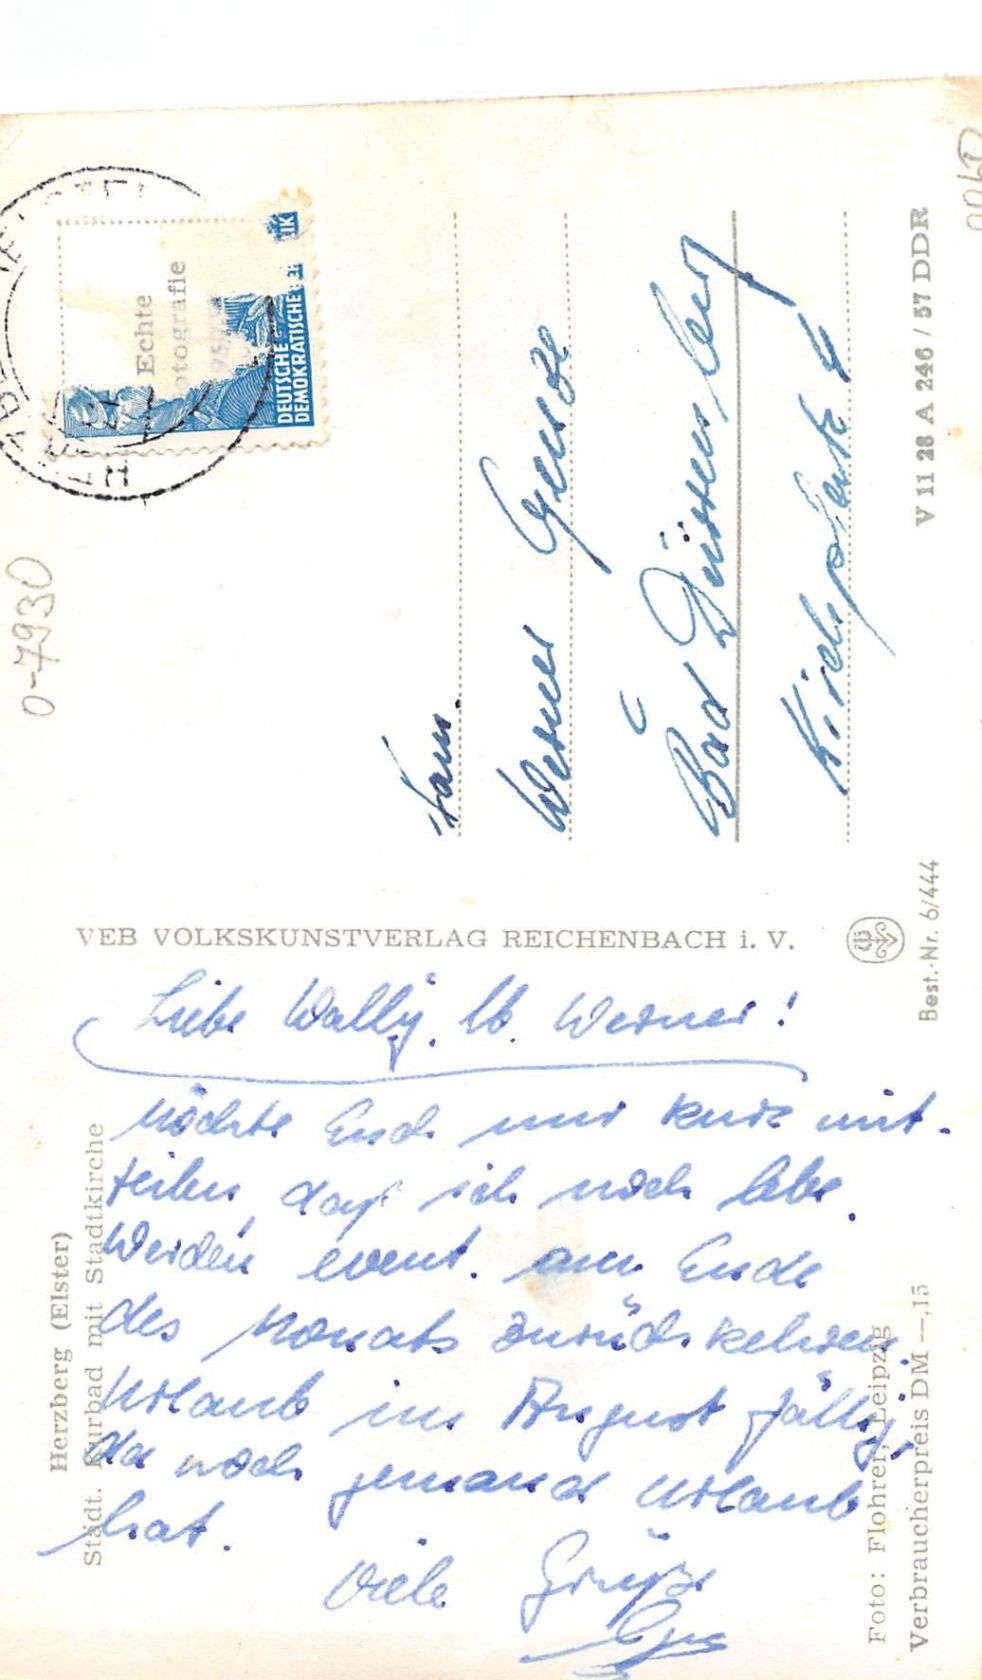 Liebe Wally, lb. Werner!
möchte Euch nur kurz mit-
teilen, daß ich noch lebe.
Werden event. am Ende
des Monats zurückkehren.
Urlaub im August fällig,
da noch jemand Urlaub
hat.
Viele Grüße
Herzberg (Elster)
Städt. Kurbad mit Stadtkirche
Foto: Flohrer, Leipzig
Verbraucherpreis DM —,15
VEB VOLKSKUNSTVERLAG REICHENBACH i. V.
Best.-Nr. 6/444
0-7930
Echte
DEUTSCHE
DEMOKRATISCHE
Fam.
Werner
Bad Dürrenberg
V 11 28 A 246 / 57 DDR